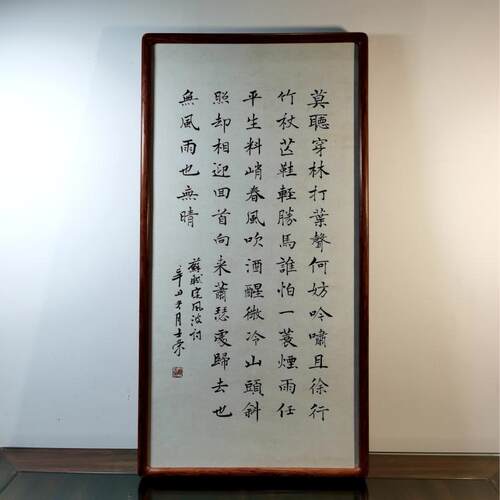 莫聽穿林打葉聲何妨吟嘯且徐行
竹杖芒鞋輕勝馬誰怕一蓑煙雨任
平生料峭春風吹酒醒微冷山頭斜
照却相迎回首向来蕭瑟處歸去也
無風雨也無晴
蘇軾定風波詞
辛丑年月士荣